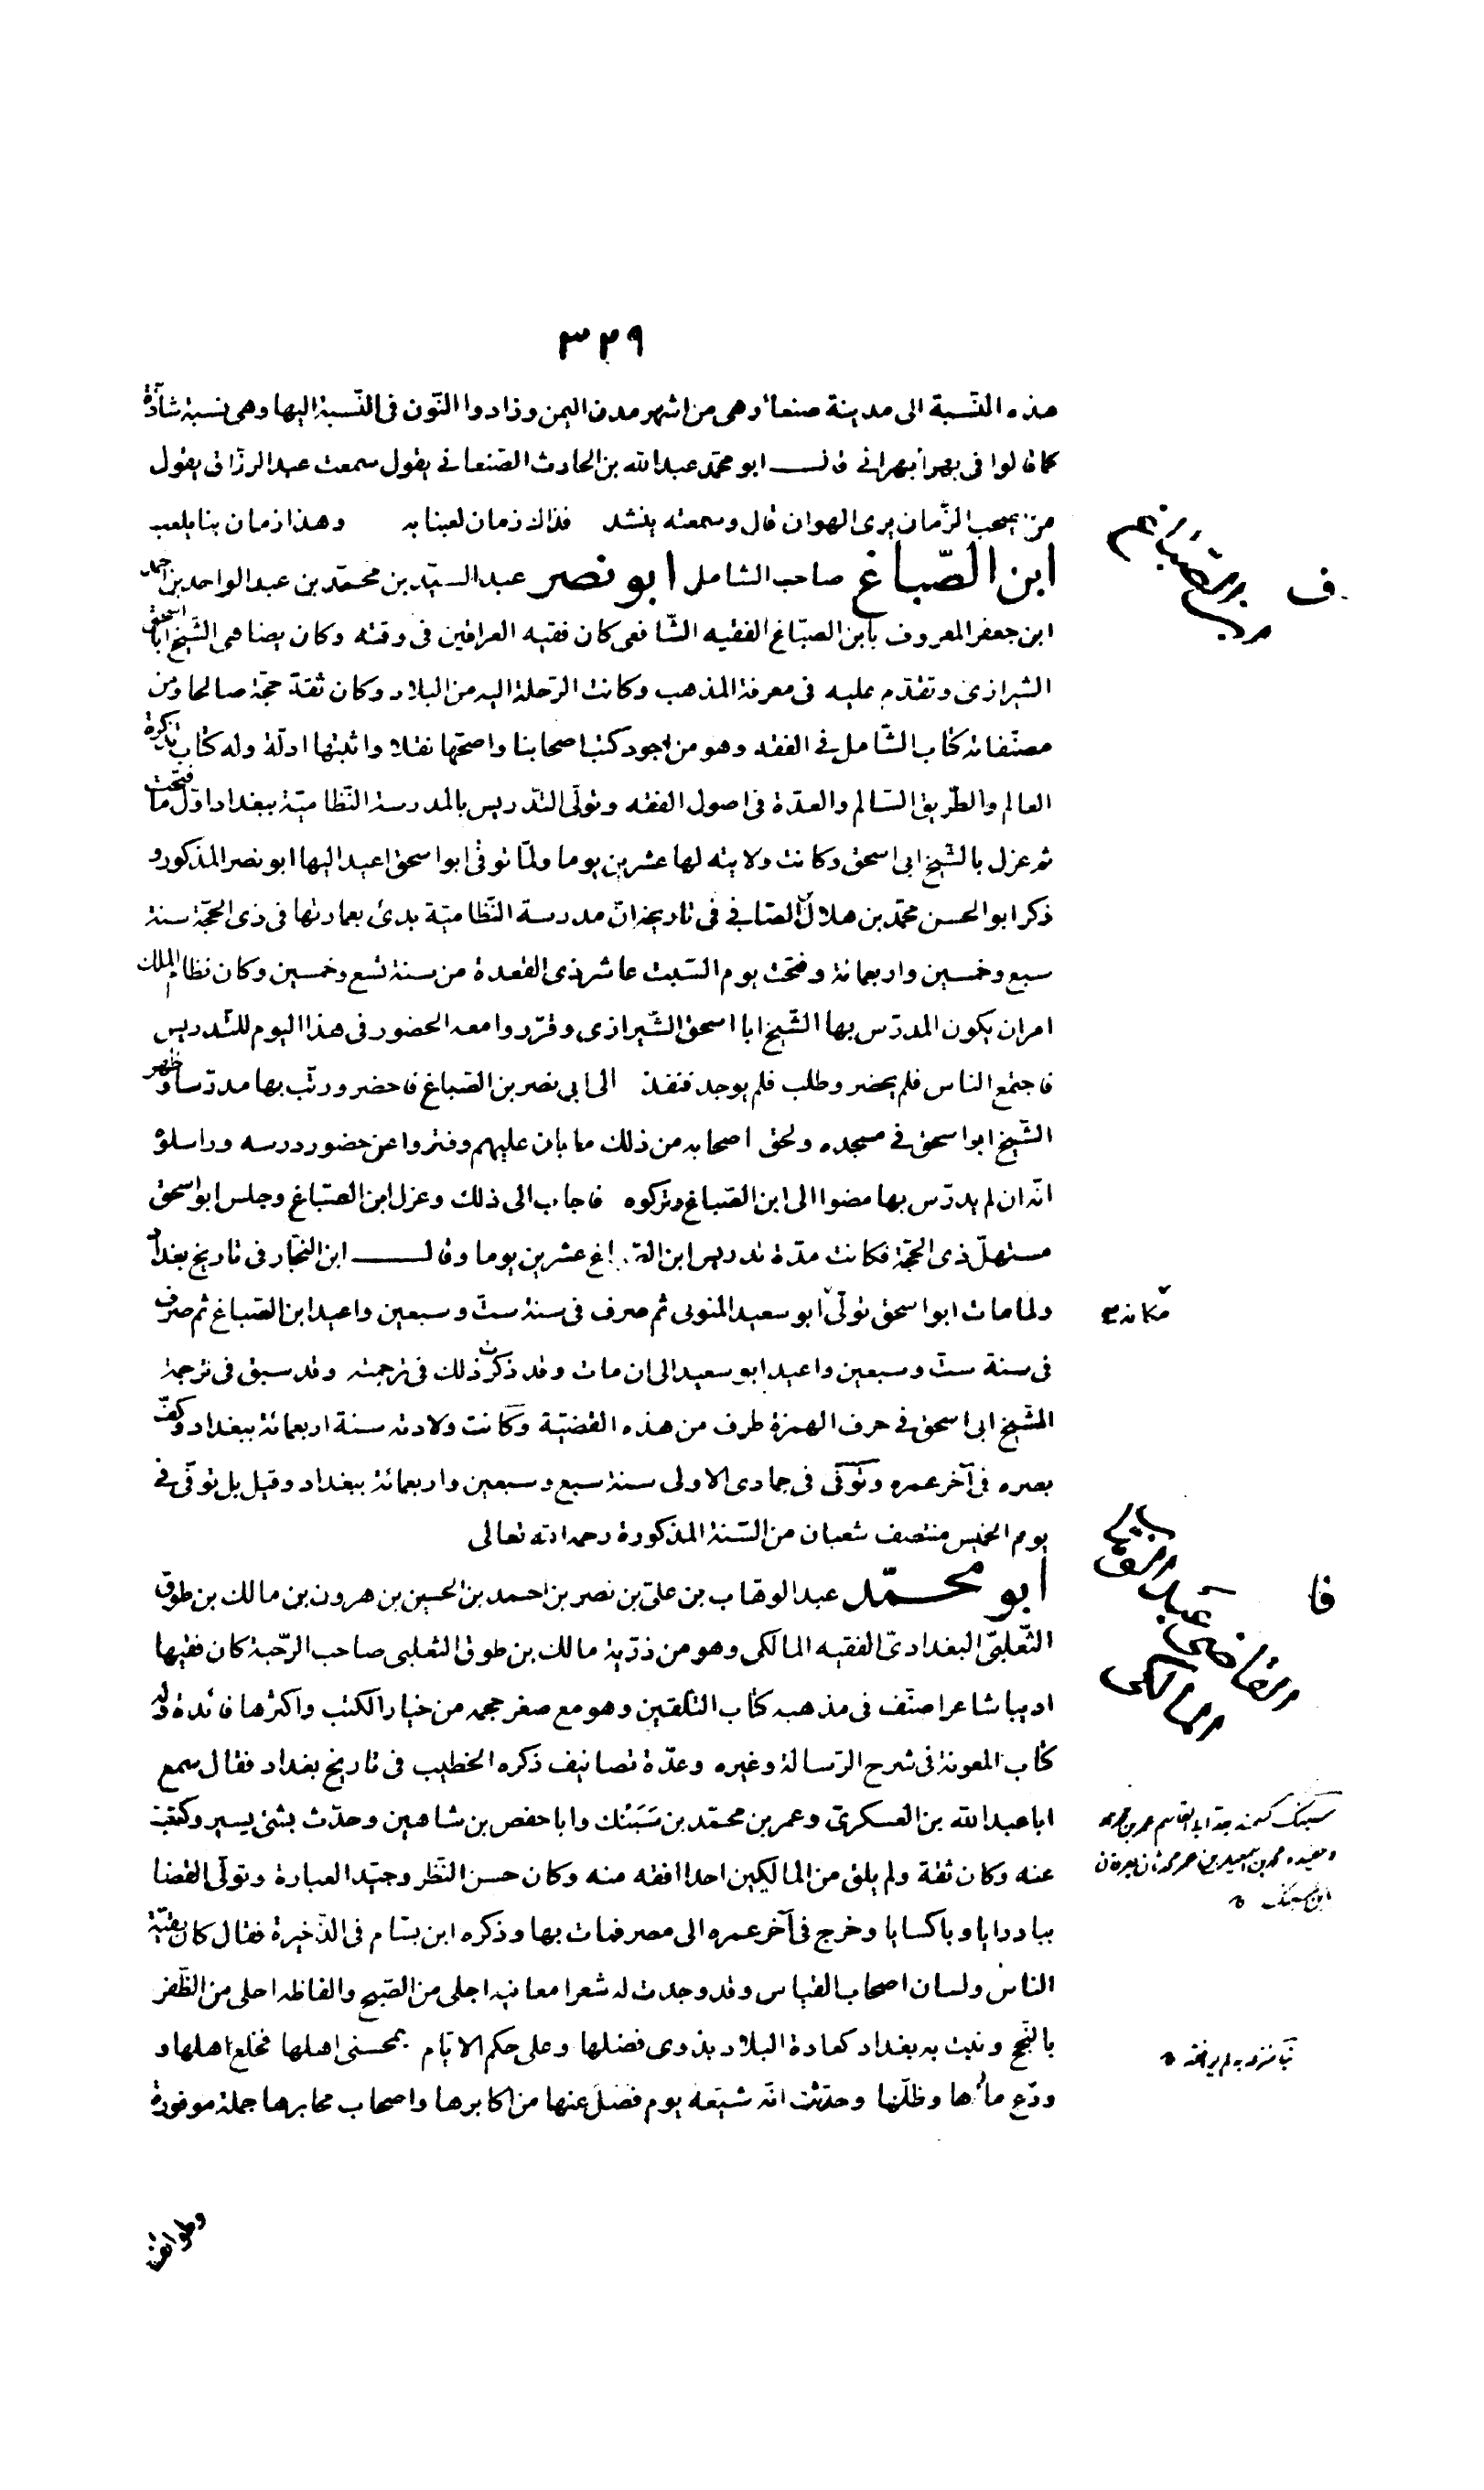 ٣٢٩
هذه النّسبة الى مدينة صنعاء وهى من اشهر مدن اليمن وزادوا النّون فى النّسبة اليها وهى نسبة شاذّة
كما قالوا فى بهراء بهرانى قال ابو محمّد عبد الله بن الحارث الصّنعانى يقول سمعت عبد الرزّاق يقول
من يصحب الزّمان يرى الهوان قال وسمعته ينشد فذاك زمان لعبنا به وهذا زمان بنا يلعب
ابن الصّباغ صاحب الشامل ابو نصر عبد السيّد بن محمّد بن عبد الواحد بن احمد
ابن جعفر المعروف بابن الصبّاغ الفقيه الشّافعى كان فقيه العراقين فى وقته وكان يضاهى الشّيخ ابا اسحق
الشيرازى وتقدّم عليه فى معرفة المذهب وكانت الرّحلة اليه من البلاد وكان ثقة حجّة صالحا ومن
مصنّفاته كتاب الشّامل فى الفقه وهو من اجود كتب اصحابنا واصحّها نقلا واثبتها ادلّة وله كتاب تذكرة
العالم والطّريق السّالم والعدّة فى اصول الفقه وتولّى التّدريس بالمدرسة النّظاميّة ببغداد اوّل ما فتحت
ثم عزل بالشّيخ ابى اسحق وكانت ولايته لها عشرين يوما ولمّا توفّى ابو اسحق اعيد اليها ابو نصر المذكور و
ذكر ابو الحسن محمّد بن هلال الصّابى فى تاريخه انّ مدرسة النّظاميّة بدئ بعمارتها فى ذى الحجّة سنة
سبع وخمسين واربعمائة وفتحت يوم السّبت عاشر ذى القعدة من سنة تسع وخمسين وكان نظام الملك
امر ان يكون المدرّس بها الشّيخ ابا اسحق الشّيرازى وقرّروا معه الحضور فى هذا اليوم للتّدريس
فاجتمع الناس فلم يحضر وطلب فلم يوجد فنفذ الى ابى نصر بن الصّباغ فاحضر ورتّب بها مدرّسا وظهر
الشّيخ ابو اسحق فى مسجده ولحق اصحابه من ذلك ما بان عليهم وفتروا عن حضور درسه وراسلوه
انّه ان لم يدرّس بها مضوا الى ابن الصّباغ وتركوه فاجاب الى ذلك وعزل ابن الصّبّاغ وجلس ابو اسحق
مستهلّ ذى الحجّة فكانت مدّة تدريس ابن الصّباغ عشرين يوما وقال ابن النجّار فى تاريخ بغداد
ولما مات ابو اسحق تولّى ابو سعيد المتولى ثم صرف فى سنة ستّ وسبعين واعيد ابن الصّباغ ثم صرف
مكانه
فى سنة ستّ وسبعين واعيد ابو سعيد الى ان مات وقد ذكرت ذلك فى ترجمته وقد سبق فى ترجمة
الشّيخ ابى اسحق فى حرف الهمزة طرف من هذه القضيّة وكانت ولادته سنة اربعمائة ببغداد وكفّ
بصره فى آخر عمره وتوفّى فى جمادى الاولى سنة سبع وسبعين واربعمائة ببغداد وقيل بل توفّى فى
يوم الخميس منتصف شعبان من السّنة المذكورة رحمه الله تعالى
ابو محمّد عبد الوهاب بن علىّ بن نصر بن احمد بن الحسين بن هرون بن مالك بن طوق
الثّعلبىّ البغدادىّ الفقيه المالكى وهو من ذرّيّة مالك بن طوق الثعلبى صاحب الرّحبة كان فقيها
القاضى عبد الوهاب
المالكى
اديبا شاعرا صنّف فى مذهبه كتاب التلقين وهو مع صغر حجمه من خيار الكتب واكثرها فائدة وله
كتاب المعونة فى شرح الرّسالة وغيره وعدّة تصانيف ذكره الخطيب فى تاريخ بغداد فقال سمع
ابا عبد الله بن العسكرىّ وعمر بن محمّد بن سَبَنْك وابا حفص بن شاهين وحدّث بشئ يسير وكتبت
عنه وكان ثقة ولم يلق من المالكيين احدا افقه منه وكان حسن النّظر وجيّد العبارة وتولّى القضا
ببادرايا وباكسايا وخرج فى آخر عمره الى مصر فمات بها وذكره ابن بسّام فى الذّخيرة فقال كان بقيّة
الناس ولسان اصحاب القياس وقد وجدت له شعرا معانيه اجلى من الصّبح والفاظه احلى من الظّفر
بالنّجح ونبت به بغداد كعادة البلاد بذوى فضلها وعلى حكم الايّام بمحسنى اهلها فخلع اهلها و
ودّع ماءها وظلّها وحدّثت انّه شيّعه يوم فصل عنها من اكابرها واصحاب محابرها جملة موفورة
وطوائف